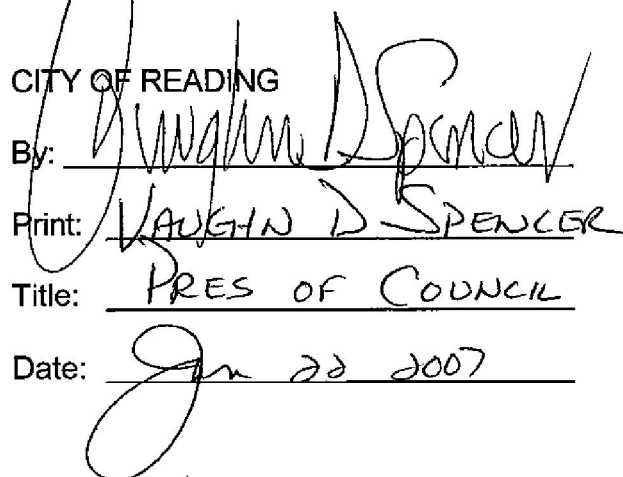 CITY OF READING
By: Vaughn D Spencer
Print: VAUGHN D SPENCER
Title: PRES OF COUNCIL
Date: Jan 22 2007